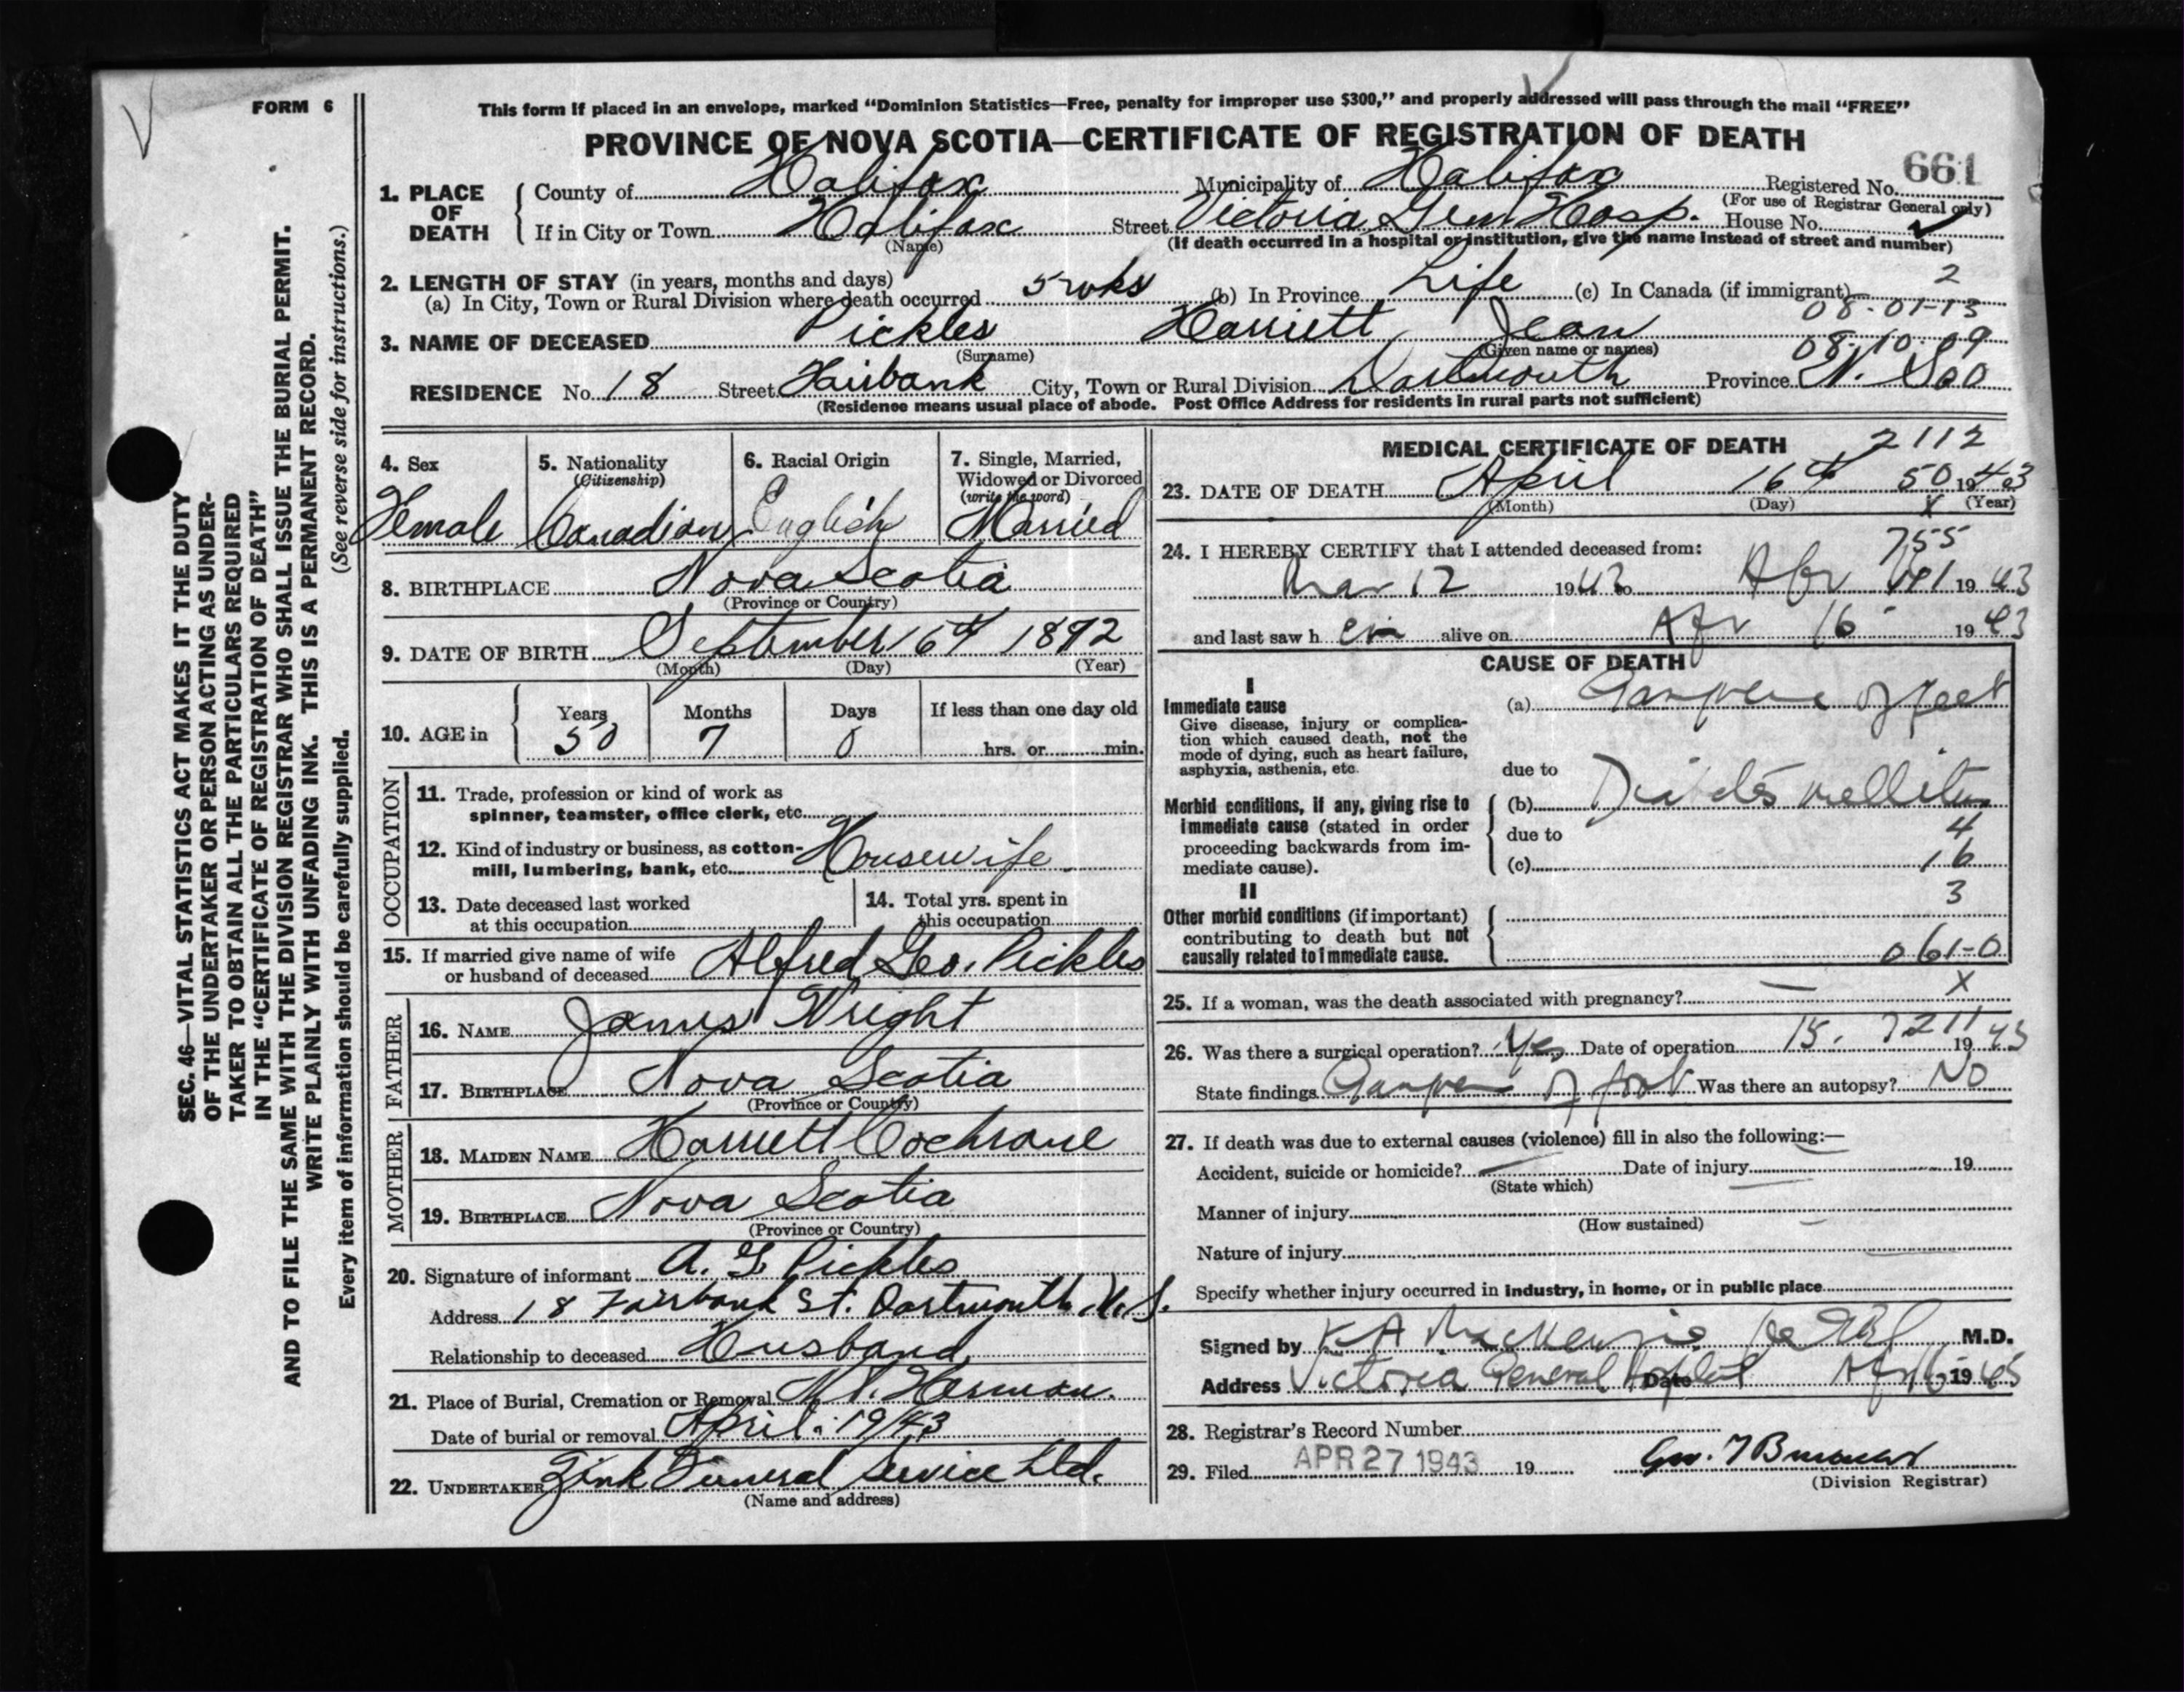 FORM 6
This form if placed in an envelope, marked "Dominion Statistics—Free, penalty for improper use $300," and properly addressed will pass through the mail "FREE"
PROVINCE OF NOVA SCOTIA—CERTIFICATE OF REGISTRATION OF DEATH
661
1. PLACE OF DEATH County of Halifax Municipality of Halifax Registered No.
(For use of Registrar General only)
If in City or Town Halifax Street Victoria Gen Hosp. House No.
(Name) (If death occurred in a hospital or institution, give the name instead of street and number)
2. LENGTH OF STAY (in years, months and days)
(a) In City, Town or Rural Division where death occurred 5 wks (b) In Province Life (c) In Canada (if immigrant) 2
08-01-13
3. NAME OF DECEASED Pickles Harriett Jean
(Surname) (Given name or names) 08-10-09
RESIDENCE No. 18 Street Fairbank City, Town or Rural Division Dartmouth Province N. S.
(Residence means usual place of abode. Post Office Address for residents in rural parts not sufficient)
4. Sex Female
5. Nationality (Citizenship) Canadian
6. Racial Origin English
7. Single, Married, Widowed or Divorced (write the word) Married
8. BIRTHPLACE Nova Scotia
(Province or Country)
9. DATE OF BIRTH September 16th 1892
(Month) (Day) (Year)
10. AGE in Years 50 Months 7 Days 0 If less than one day old
hrs. or min.
OCCUPATION
11. Trade, profession or kind of work as
spinner, teamster, office clerk, etc.
12. Kind of industry or business, as cotton-
mill, lumbering, bank, etc. Housewife
13. Date deceased last worked
at this occupation
14. Total yrs. spent in
this occupation
15. If married give name of wife
or husband of deceased Alfred Geo. Pickles
FATHER
16. NAME James Wright
17. BIRTHPLACE Nova Scotia
(Province or Country)
MOTHER
18. MAIDEN NAME Harriett Cochrane
19. BIRTHPLACE Nova Scotia
(Province or Country)
20. Signature of informant A. G. Pickles
Address 18 Fairbank St. Dartmouth N.S.
Relationship to deceased Husband
21. Place of Burial, Cremation or Removal Mt. Herman.
Date of burial or removal April. 19/43
22. UNDERTAKER Zink Funeral Service Ltd.
(Name and address)
MEDICAL CERTIFICATE OF DEATH 2112
23. DATE OF DEATH April 16th 50 1943
(Month) (Day) X (Year)
24. I HEREBY CERTIFY that I attended deceased from: 755
Mar 12 1943 to Apr 1943
and last saw h alive on Apr 16 1943
CAUSE OF DEATH
I
Immediate cause
Give disease, injury or complica-
tion which caused death, not the
mode of dying, such as heart failure,
asphyxia, asthenia, etc.
(a) Gangrene of feet
due to
Morbid conditions, if any, giving rise to
immediate cause (stated in order
proceeding backwards from im-
mediate cause).
(b) Diabetes mellitus
due to 4
(c) 16
II
3
Other morbid conditions (if important)
contributing to death but not
causally related to immediate cause.
061-0
25. If a woman, was the death associated with pregnancy? — X
26. Was there a surgical operation? Yes Date of operation 15. 1943
State findings Gangrene of foot Was there an autopsy? No
27. If death was due to external causes (violence) fill in also the following:—
Accident, suicide or homicide? Date of injury 19
(State which)
Manner of injury
(How sustained)
Nature of injury
Specify whether injury occurred in industry, in home, or in public place
Signed by K A MacKenzie M.D.
Address Victoria General Hospital Date Apr 16 1943
28. Registrar's Record Number
29. Filed APR 27 1943 19
(Division Registrar)
SEC. 46—VITAL STATISTICS ACT MAKES IT THE DUTY
OF THE UNDERTAKER OR PERSON ACTING AS UNDER-
TAKER TO OBTAIN ALL THE PARTICULARS REQUIRED
IN THE "CERTIFICATE OF REGISTRATION OF DEATH"
AND TO FILE THE SAME WITH THE DIVISION REGISTRAR WHO SHALL ISSUE THE BURIAL PERMIT.
WRITE PLAINLY WITH UNFADING INK. THIS IS A PERMANENT RECORD.
(See reverse side for instructions.)
Every item of information should be carefully supplied.